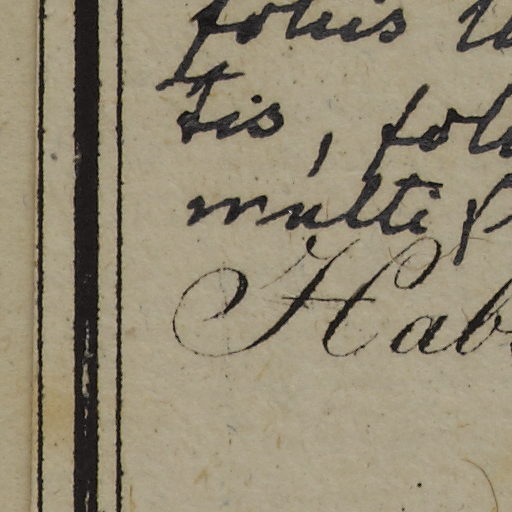 foliis
tis, foli
multip
Hab